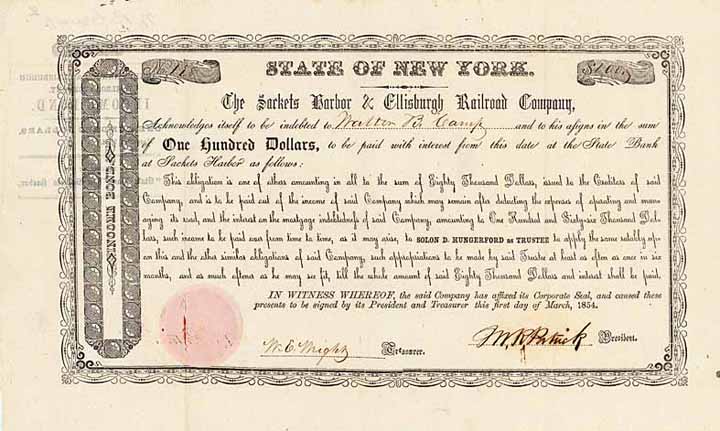 No. 118
$100
STATE OF NEW YORK.
The Sackets Harbor & Ellisburgh Railroad Company,
Acknowledges itself to be indebted to Walter B. Camp and to his assigns in the sum
of One Hundred Dollars, to be paid with interest from this date at the State Bank
at Sackets Harbor as follows:
This obligation is one of others amounting in all to the sum of Eighty Thousand Dollars, issued to the Creditors of said
Company, and is to be paid out of the income of said Company which may remain after deducting the expenses of operating and man-
aging its road, and the interest on the mortgage indebtedness of said Company, amounting to One Hundred and Sixty-six Thousand Dol-
lars, such income to be paid over from time to time, as it may arise, to SOLON D. HUNGERFORD as TRUSTEE to apply the same ratably up-
on this and the other similar obligations of said Company, such appropriations to be made by said Trustee at least as often as once in six
months, and as much oftener as he may see fit, till the whole amount of said Eighty Thousand Dollars and interest shall be paid.
IN WITNESS WHEREOF, the said Company has affixed its Corporate Seal, and caused these
presents to be signed by its President and Treasurer this first day of March, 1854.
W. E. Wright Treasurer.
M R Patrick President.
INCOME BOND